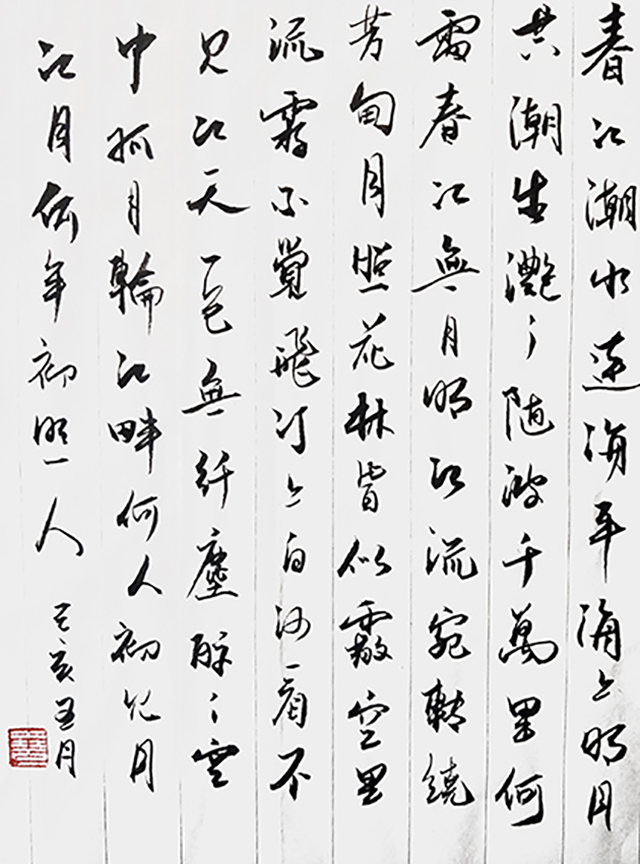 春江潮水連海平海上明月
共潮生灩〻随波千萬里何
處春江無月明江流宛轉繞
芳甸月照花林皆似霰空里
流霜不覺飛汀上白沙看不
見江天一色無纤塵皎〻空
中孤月輪江畔何人初見月
江月何年初照人
己亥五月